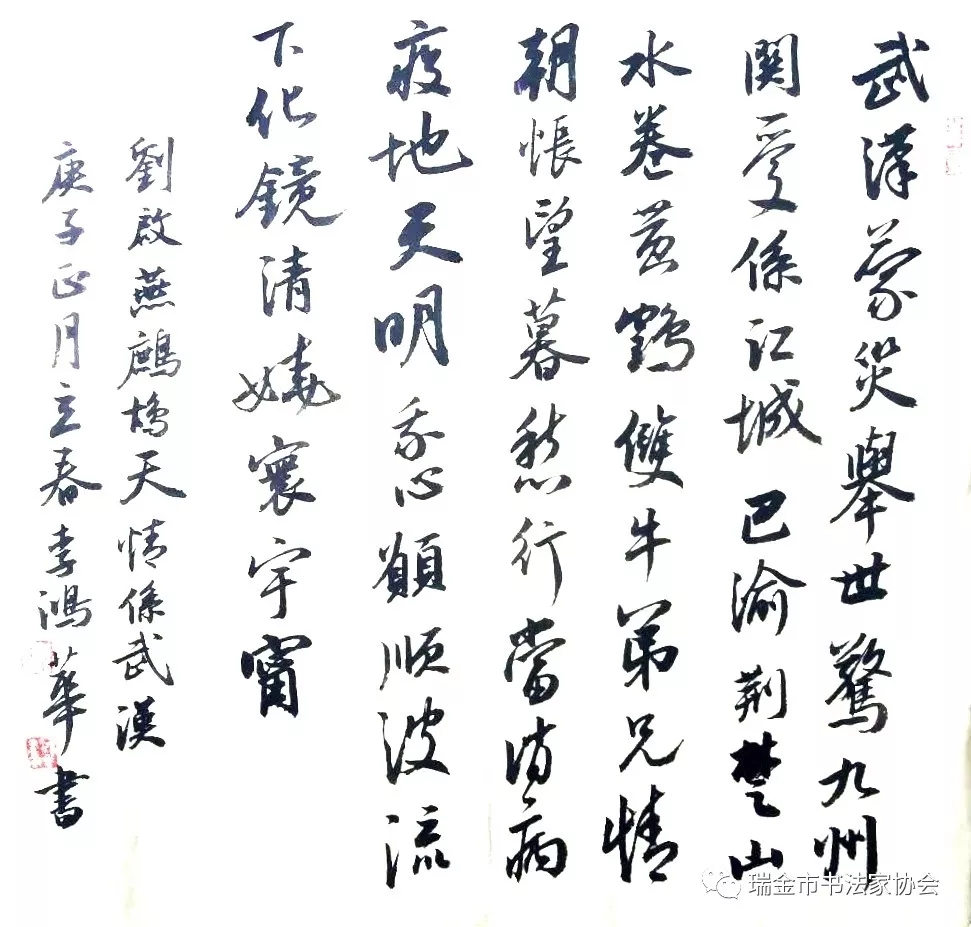 武漢蒙災舉世驚九州
関愛係江城巴渝荊楚山
水卷黄鶴雙牛弟兄情
朝悵望暮愁行當消病
疫地天明我心願順波流
下化鏡清嬈寰宇甯
劉啟燕鷓鴣天情係武漢
庚子正月立春李鴻華書
瑞金市书法家协会